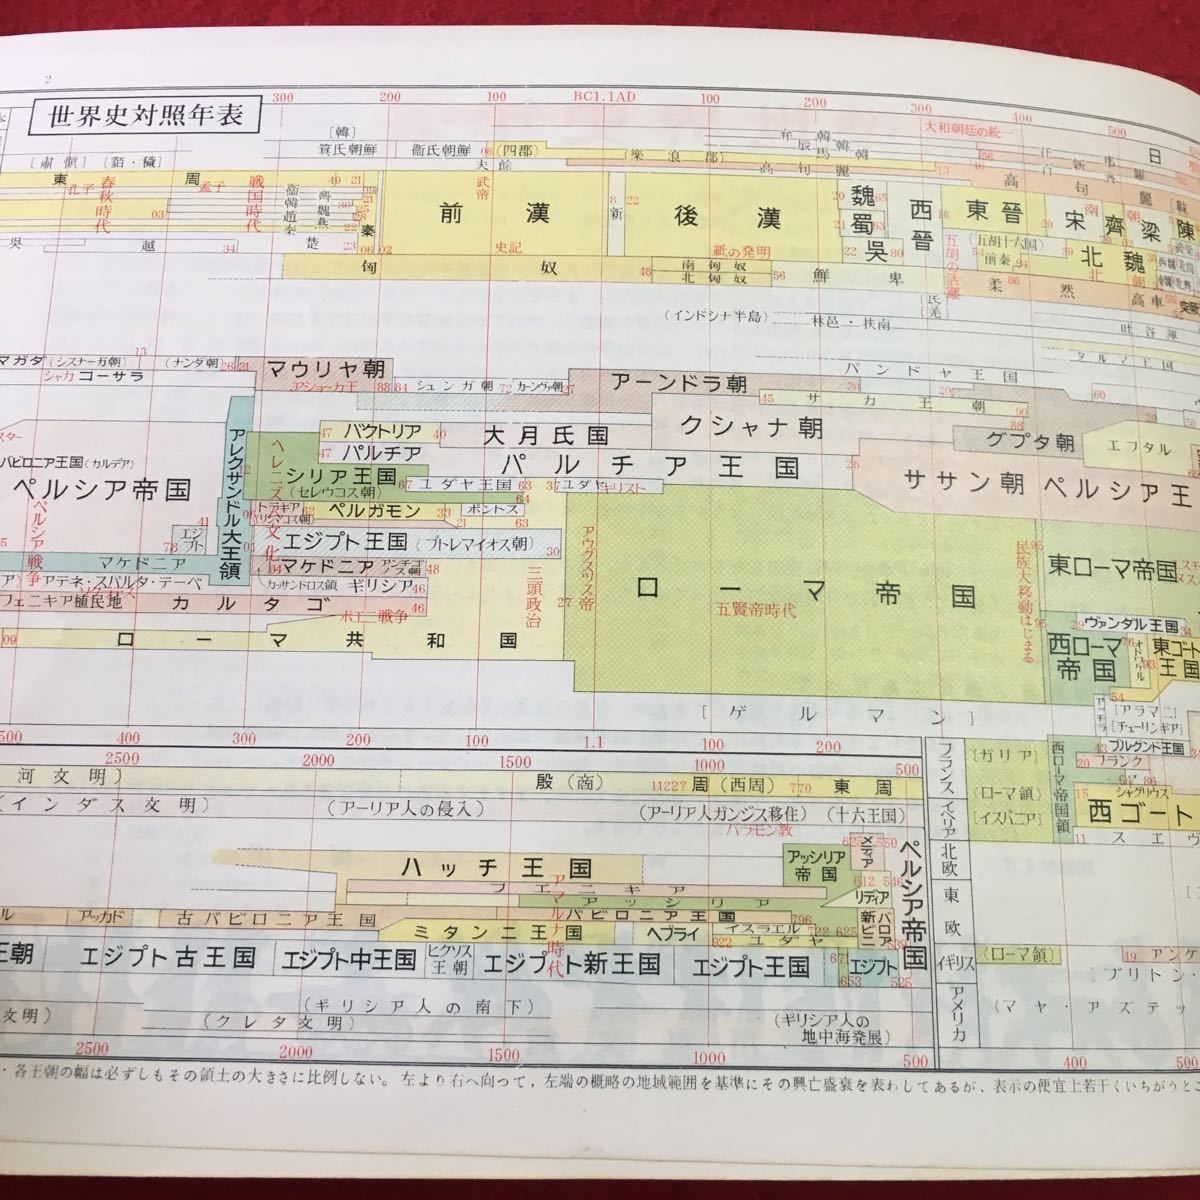 2
世界史対照年表
300 200 100 BC1.1AD 100 200 300 400 500
大和朝廷の統一
〔韓〕 辰韓 馬韓 弁韓
箕氏朝鮮 衞氏朝鮮 08 (四郡) (樂浪郡) 56 任那 新羅 日
〔肅愼〕〔貊・穢〕 夫餘 高句麗 13 高句麗
東周 孔子 春秋時代 孟子 戦国時代
03 衞韓趙秦 齊魏燕楚 49 21 30 22 23 25 秦 06 02
前漢 武帝 史記 8 新 22 後漢 紙の発明
魏 蜀 吳 20 21 22 65 63 80 西晉 16 東晉 20 宋 齊 梁 陳 南朝
吳 越 34
匈奴 48 南匈奴 北匈奴 56 鮮卑 五胡の活躍 (五胡十六国) 54 前秦 94 39 北魏 北朝
86 柔然 高車 突厥
〔氐羌〕
(インドシナ半島) 林邑・扶南 吐谷渾
タルマ王国
マガダ (シスナーガ朝) 13 (ナンダ朝) 26 21 マウリヤ朝 アショーカ王 88 84 シュンガ朝 72 カーンヴァ朝 27 アーンドラ朝 パンドヤ王国
シャカ コーサラ
45 サカ王朝 99 20 60
47 バクトリア 40 大月氏国 クシャナ朝 86 グプタ朝 エフタル
47 パルチア パルチア王国 26 ササン朝ペルシア王
バビロニア王国(カルデア)
ペルシア帝国 ペルシア戦争 アレクサンドル大王領 ヘレニズム文化
シリア王国 (セレウコス朝) 67 ユダヤ王国 63 64 37 ユダヤ キリスト
トラキア (リシマコス朝) 62 ペルガモン 33 ポントス 21 63
41 エジプト 78 エジプト王国(プトレマイオス朝) 30
マケドニア 94 マケドニア アンチゴノス朝 48
アテネ・スパルタ・テーベ ソクラテス カッサンドロス領 ギリシア 46
フェニキア植民地 カルタゴ 46
ポエニ戦争
09 ローマ共和国 三頭政治 27 アウグスツス帝
ローマ帝国
五賢帝時代
民族大移動はじまる 95 東ローマ帝国
95 29 ヴァンダル王国 34
西ローマ帝国 76 オドワケル 93 東ゴート王国
54
〔ゲルマン〕 アッチラ 〔アラマニ〕 〔チューリンギア〕
500 400 300 200 100 1.1 100 200
2500 2000 1500 1000 500
河文明〕 殷(商) 1122? 周(西周) 770 東周
(インダス文明) (アーリア人の侵入) (アーリア人ガンジス移住) (十六王国)
バラモン教
ハッチ王国 アッシリア帝国 625 メディア 550 ペルシア帝国
フェニキア アマルナ時代 612 リディア 546
アッシリア
アッカド 古バビロニア王国 バビロニア王国 796 新バビロニア
ミタンニ王国 ヘブライ イスラエル 722 625
922 ユダヤ 539
王朝 エジプト古王国 エジプト中王国 ヒクソス王朝 エジプト新王国 エジプト王国 671 653 エジプト 525
文明) (クレタ文明) (ギリシア人の南下) (ギリシア人の地中海発展)
2500 2000 1500 1000 500
フランス 〔ガリア〕 西ローマ帝国領 43 ブルグンド王国 34
20 フランク
64 86
(ローマ領) 15 シャグリウス
イベリア 〔イスパニア〕 西ゴート
11 スエヴ
北欧
東欧
イギリス (ローマ領) 49 アンゲ
〔ブリトン・
アメリカ (マヤ・アズテッ
400 500
・各王朝の幅は必ずしもその領土の大きさに比例しない。左より右へ向って，左端の概略の地域範囲を基準にその興亡盛衰を表わしてあるが，表示の便宜上若干くいちがうとこ